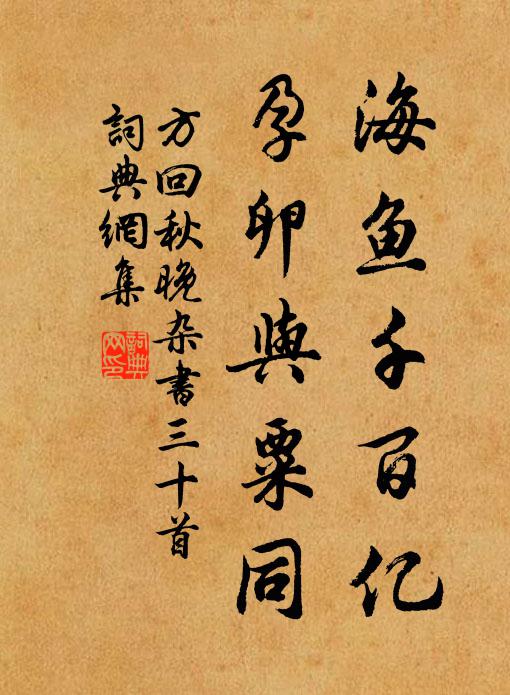 海鱼千百亿
孕卵與粟同
方回秋晚杂書三十首
詞典網集
詞典網印